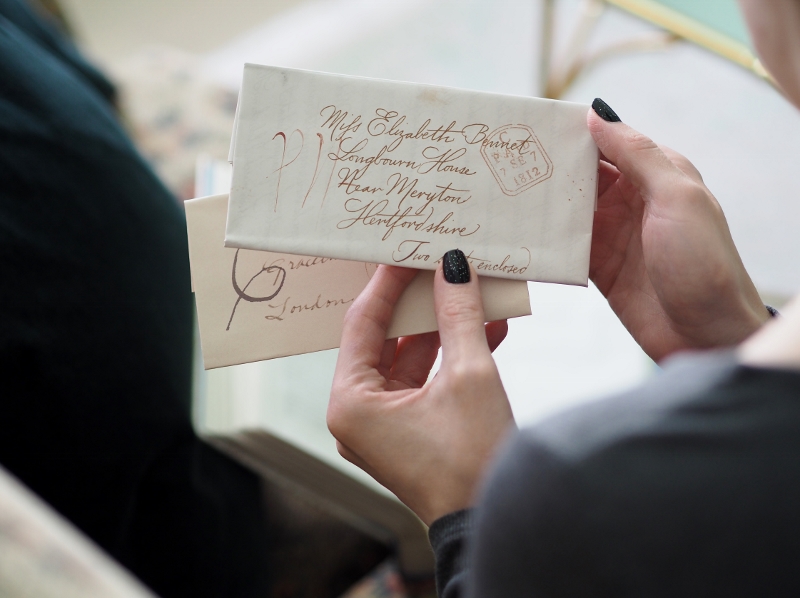 Miss Elizabeth Bennet
Longbourn House
Near Meryton
Hertfordshire
Two enclosed
7 SE 7
1812
London